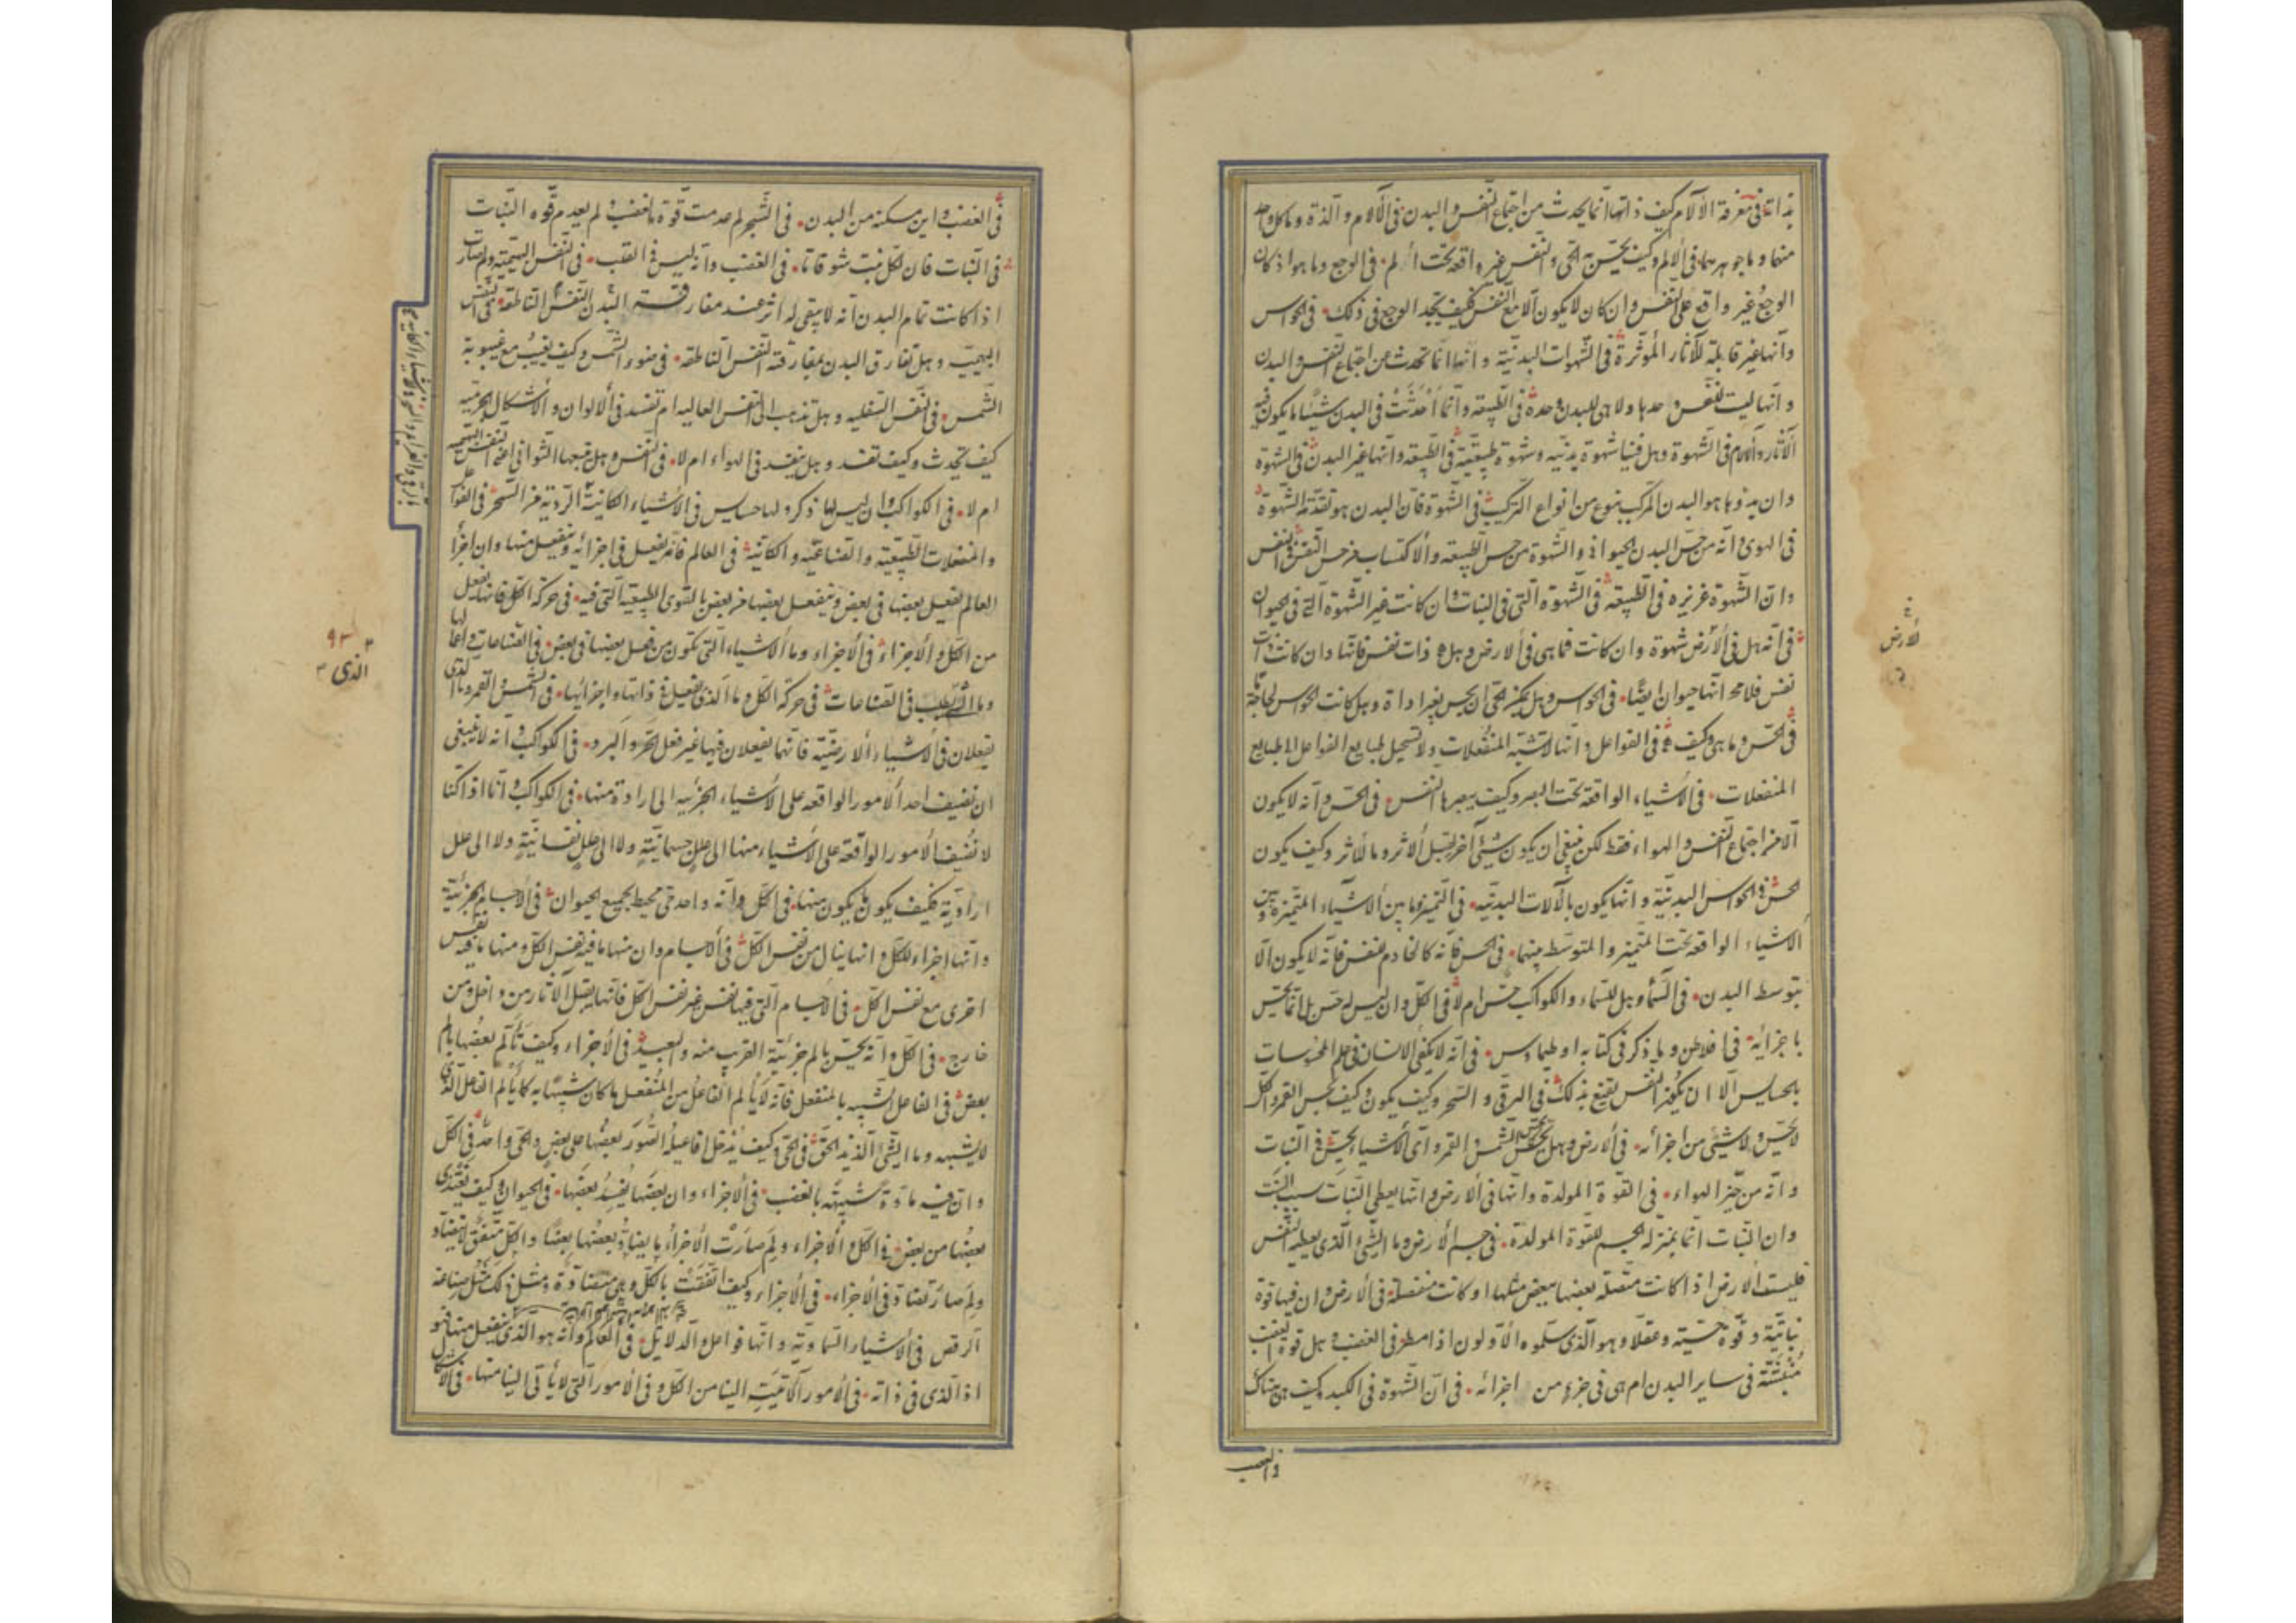 بذاتنا فى معرفة الآلام كيف ذاتها انما يحدث من اجتماع النفس والبدن فى الآلام و الذة وما كل واحد
منهما وما جوهرهما فى الالم وكيف يحس به الحى والنفس غير واقعة تحت الالم فى الوجع وما هو اذ كان
الوجع غير واقع على النفس وان كان لا يكون الا مع النفس فكيف يجد الوجع فى ذلك فى الحواس
وانها غير قابلة للآثار المؤثرة فى الشهوات البدنية وانها انما تحدث من اجتماع النفس والبدن
و انها ليست للنفس وحدها ولا هى للبدن وحده فى الطبيعة وانما احدثت فى البدن شيئا ما يكون فيه
الآثار والآلام فى الشهوة وهل فينا شهوة بدنيه وشهوة طبيعية فى الطبيعة وانها غير البدن فى الشهوة
وان بدؤها هو البدن المركب بنوع من انواع التركيب فى الشهوة فان البدن هو تقدمة الشهوة
فى الهوى وانه من حس البدن الحيوانى والشهوة من حس الطبيعه والاكتساب من حس النفس فى النفس
وان الشهوة غريزه فى الطبيعة فى الشهوة التى فى النبات وان كانت غير الشهوة التى فى الحيوان
فى انه هل فى الأرض شهوة وان كانت فما هى فى الارض وهل هى ذات نفس فانها وان كانت ذات
نفس فلا محة انها حيوان ايضا فى الحواس وهل يمكن الحى ان يحس بغير اداة وهل كانت الحواس لحاجة ما
فى الحس وما هى وكيف هى فى الفواعل وانها لا تشبه المنفعلات ولا تستحيل طبايع الفواعل الى طبايع
المنفعلات فى الاشياء الواقعة تحت البصر وكيف يبصرها النفس فى الحس وانه لا يكون
الا من اجتماع النفس والهواء فقط لكن ينبغى ان يكون شيئ آخر يقبل الاثر وما الأثر وكيف يكون
الحس فى الحواس البدنية وانها يكون بالآلات البدنية فى التميز وما بين الاشياء المتميزة وبين
الاشياء الواقعة تحت المتميز والمتوسط بينهما فى الحس فانه كالخادم للنفس فانه لا يكون الا
بتوسط البدن فى السماء وهل للسماء والكواكب حس ام لا فى الكل وان ليس له حس بل انما يحس
باجزائه فى افلاطن وما ذكر فى كتابه او طيماوس فى انه لا يكتفى الانسان فى علم المحسوسات
بالحسايس الا ان يكون النفس يقنع بذلك فى الرقى و السحر وكيف يكون وكيف يحس القمر والكل
لا يحس ولا شيئ من اجزائه فى الارض وهل تحس كما تحس الشمس والقمر واى الأشياء يحس فى النبات
وانه من حيز الهواء فى القوة المولدة وانها فى الارض وانها يعطى النبات سبب النبت
وان النبات انما بمنزلة الجسم للقوة المولدة فى جسم الأرض وما الشئ الذى يعطيه النفس
فليست الارض اذا كانت متصلة بعضها ببعض مثلها اذ كانت منفصلة فى الأرض وان فيها قوة
نباتية وقوة حسية وعقلا وهو الذى سلموه الأولون اذا مطر فى الغضب وهل قوة الغضب
منبثة فى ساير البدن ام هى فى جزء من اجزائه فى ان الشهوة فى الكبد وكيف هى هناك
لأرض
والغضب
فى الغضب واين مسكنه من البدن فى الشجر لم عدمت قوة الغضب ولم يعدم قوه النبات
فى النبات فان لكل نبت شوقا ما فى الغضب وانه ليس فى القلب فى النفس البهيمية ولم صار
اذا كانت تمام البدن انه لا يبقى له اثر عند مفارقته البدن النفس الناطقة فى النفس
البهيمية وهل تفارق البدن بمفارقة النفس الناطقه فى ضوء الشمس وكيف يغيب مع غيبوبة
الشمس فى النفس السفليه وهل تذهب الى النفس العاليه ام تفسد فى الالوان و الأشكال الجرمية
كيف تحدث وكيف تفسد وهل ينفسد فى الهواء ام لا فى النفس وهل تتبعها الثوانى اعنى النفس البهيميه
ام لا فى الكواكب وان ليس لها ذكر ولها حسايس فى الأشياء الكاينة الردية من السحر فى الفواعل
والمنفعلات الطبيعية والصناعية والكائنة فى العالم فانه يفعل فى اجزائه وينفعل منها وان اجزأ
العالم يفعل بعضها فى بعض وينفعل بعضها من بعض بالقوى الطبيعية التى فيه فى حركة الكل فانها يفعل
من الكل و الأجزاء فى الأجزاء وما الأشياء التى تكون من فعل بعضها فى بعض فى الصناعات واعمالها
وما الشئ يطلب فى الصناعات فى حركة الكل وما الذى يفعل فى ذاتها واجزائها فى الشمس والقمر وما الذى
يفعلان فى الاشياء الارضية فانهما يفعلان فيها غير فعل الحر والبرد فى الكواكب وانه لا ينبغى
ان نضيف احد الامور الواقعه على الاشياء الجزئيه الى ارادة منها فى الكواكب وانا اذا كنا
لا نضيف الامور الواقعة على الاشياء منها الى علل جسمانية ولا الى علل نفسانية ولا الى علل
ارادية فكيف يكون ما يكون منها فى الكل وانه واحد حى محيط بجميع الحيوان فى الأجسام الجزئية
وانها اجزاء للكل وانها ينال من نفس الكل فى الأجسام وان منها ما فيه نفس الكل ومنها ما فيه نفس
اخرى مع نفس الكل فى الأجسام التى فيها نفس غير نفس الكل فانها يقبل الآثار من داخل ومن
خارج فى الكل وانه يحس بالم جزئية القريب منه والبعيد فى الأجزاء وكيف يألم بعضها بالم
بعض فى الفاعل الشبيه بالمنفعل فانه لا يألم الفاعل من المنفعل ما كان شبيها به كما يألم الفاعل الذى
لا يشبهه وما الشئ اللذيذ الحق فى الحى وكيف يدخل افاعيله الصور بعضها على بعض والحى واحد فى الكل
وان فيه مادة شبيهة بالغضب فى الأجزاء وان بعضها يفسد بعضها فى الحيوان وكيف يغتذى
بعضها من بعض فى الكل والأجزاء ولم صارت الأجزاء يضاد بعضها بعضا والكل متفق لا يتضاد
ولم صار تضاد فى الأجزاء فى الأجزاء وكيف اتفقت بالكل وهى متضادة ومثل ذلك مثل صناعة
الرقص فى الأشياء السماوية وانها فواعل والدلايل فى العالم وانه هو الذى ينفعل منها فهو
اذ الذى فى ذاته فى الأمور الآتية الينا من الكل وفى الامور التى لا يأتى الينا منها فى الاشكال
الذى